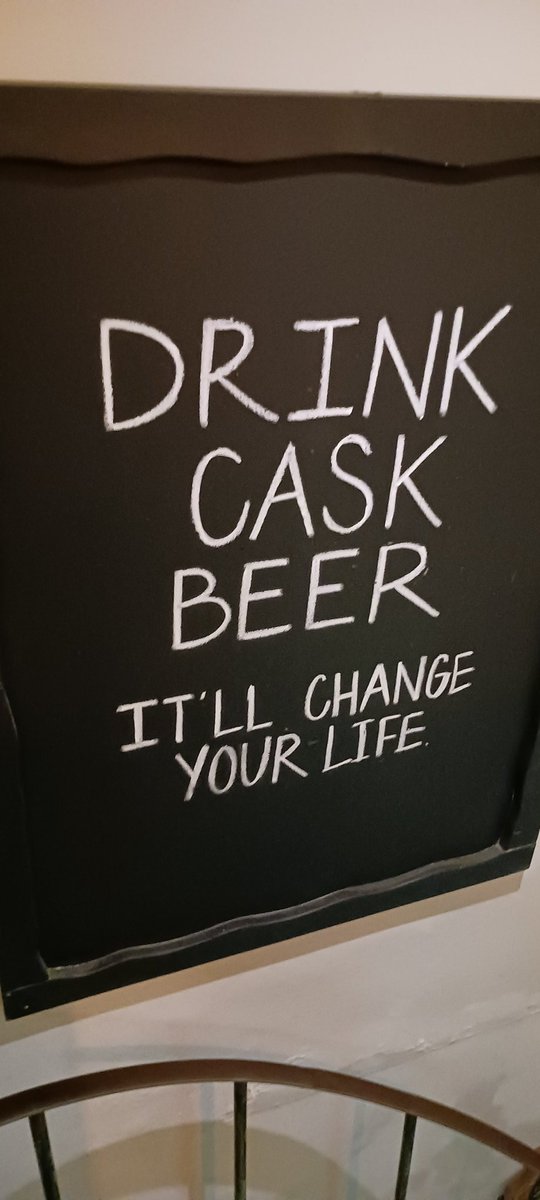 DRINK
CASK
BEER
IT'LL CHANGE
YOUR LIFE.